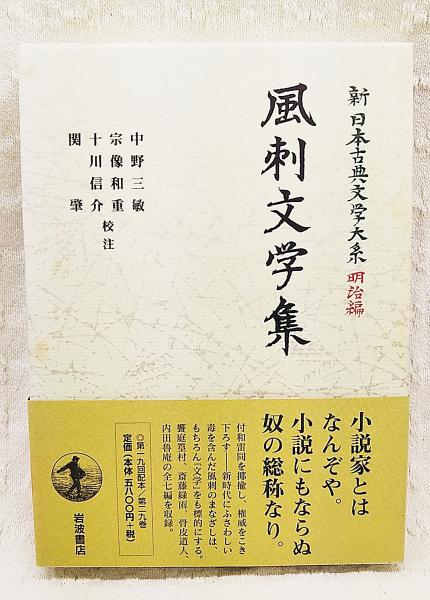 新日本古典文学大系 明治編
風刺文学集
中野三敏
宗像和重
十川信介
関肇
校注
小説家とは
なんぞや。
小説にもならぬ
奴の総称なり。
付和雷同を揶揄し、権威をこき
下ろす――新時代にふさわしい
毒を含んだ風刺のまなざしは、
もちろん「文学」をも標的にする。
饗庭篁村、斎藤緑雨、骨皮道人、
内田魯庵の全七編を収録。
◎第一九回配本/第二九巻
定価(本体 五八〇〇円+税)
岩波書店